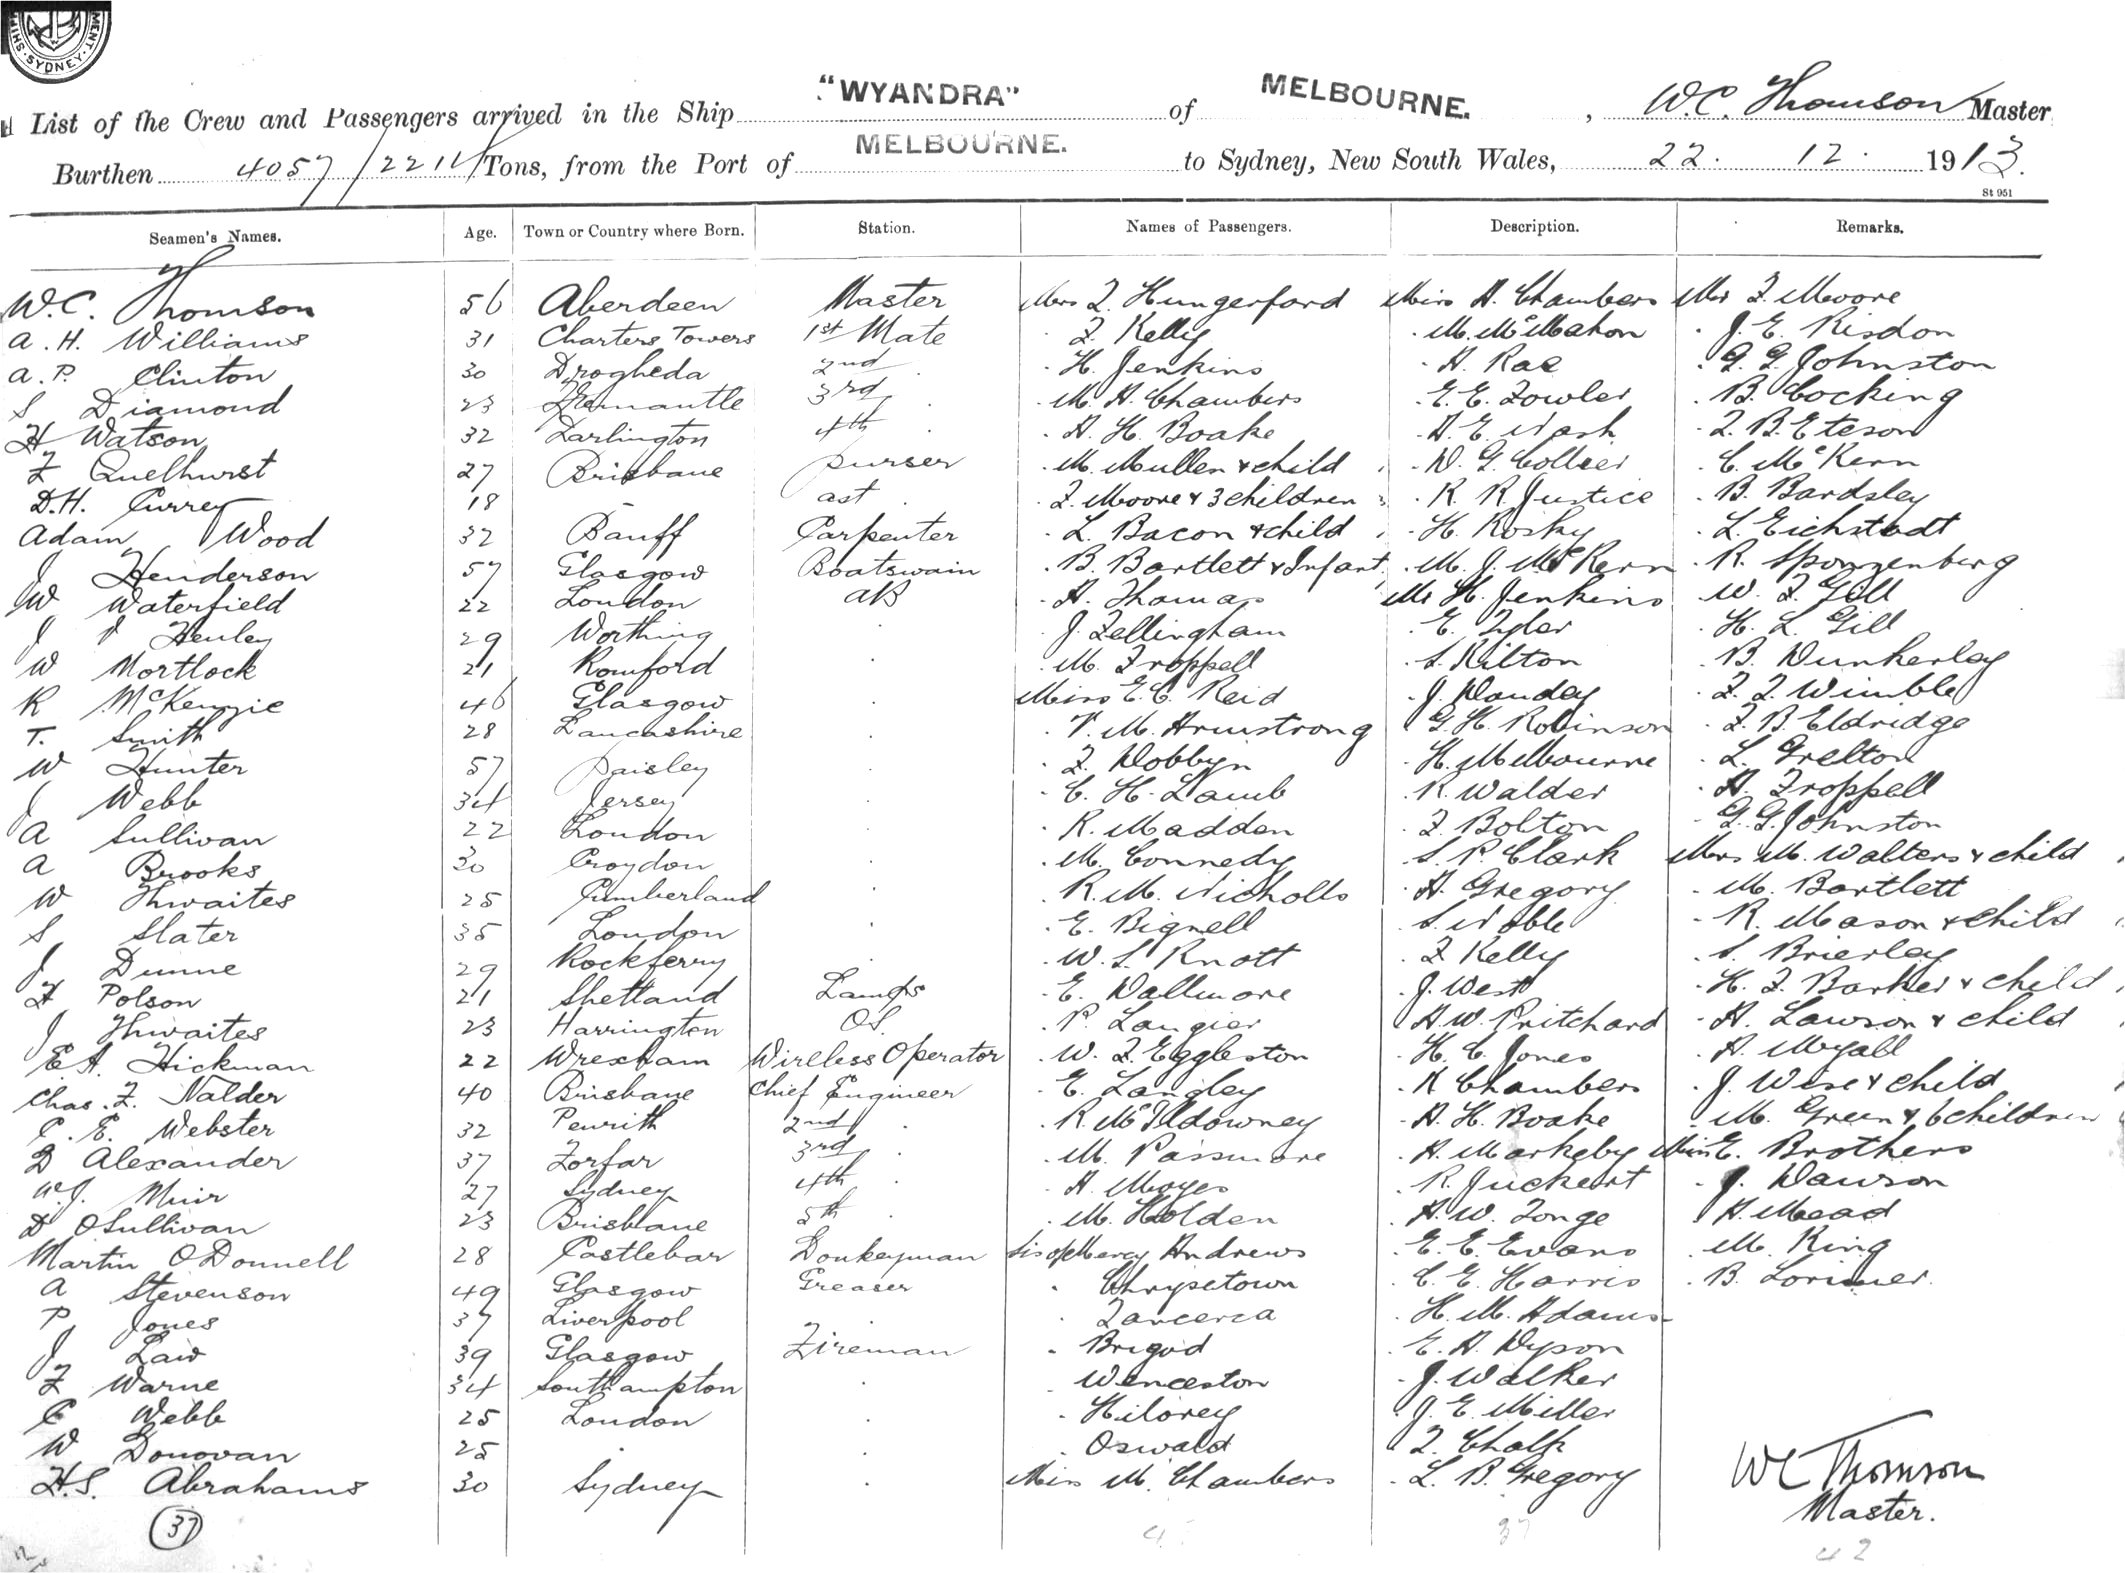 MENT. SYDNEY. SHI
List of the Crew and Passengers arrived in the Ship "WYANDRA" of MELBOURNE. , W.C. Thomson Master
Burthen 4057/2211 Tons, from the Port of MELBOURNE. to Sydney, New South Wales, 22. 12. 1913.
St 951
Seamen's Names. Age. Town or Country where Born. Station. Names of Passengers. Description. Remarks.
W.C. Thomson 56 Aberdeen Master Mrs F. Hungerford Miss A. Chambers Mrs F. Moore
A. H. Williams 31 Charters Towers 1st Mate . F. Kelly . M. McMahon . J. E. Risdon
A. P. Clinton 30 Drogheda 2nd . H. Jenkins . A. Rae . G. G. Johnston
S Diamond 23 Fremantle 3rd . . M. A. Chambers . E. E. Fowler . B. Cocking
H Watson 32 Darlington 4th . . A. H. Boake . A. E. Nash . F. B. Eteson
F Quelhurst 27 Brisbane purser . M. Mullen & child . W. G. Collier . C. McKern
D.H. Currey 18 ast . . F. Moore & 3 children . R. R. Justice . B. Bardsley
Adam Wood 32 Banff Carpenter . L. Bacon & child . H. Rosky . L. Eichstadt
J Henderson 57 Glasgow Boatswain . B. Bartlett & Infant . M. J. McKern . R. Sponzenberg
W Waterfield 22 London AB . A. Thomas Mr H. Jenkins . W. F. Gill
J J Henley 29 Worthing . . J. Fellingham . E. Tyler . H. L. Gill
W Mortlock 21 Romford . . M. Froppell . S. Kilton . B. Dunkerley
R McKenzie 46 Glasgow . Miss E. C. Reid . J. Dandey . F. F. Wimble
T. Smith 28 Lancashire . . V. M. Armstrong . G. H. Robinson . F. B. Eldridge
W Hunter 57 Paisley . . F. Dobbyn . H. Melbourne . L. Grelton
J Webb 34 Jersey . . C. H. Lamb . R. Walder . A. Froppell
A Sullivan 22 London . . R. Madden . F. Bolton . G. G. Johnston
A Brooks 30 Croydon . . M. Connedy . S. P. Clark Mrs M. Walters & child
W Thwaites 25 Cumberland . . R. M. Nicholls . A. Gregory . M. Bartlett
S Slater 35 London . . E. Bignell . S. Noble . R. Mason & child
J Dunne 29 Rockferry . . W. S. Knott . F. Kelly . S. Brierley
F Polson 21 Shetland Lamps . E. Dallimore . J. West . H. F. Barker & child
J Thwaites 23 Harrington O.S. . P. Langier . A. W. Pritchard . A. Lawson & child
E A. Hickman 22 Wrexham Wireless Operator . W. F. Eggleston . H. C. Jones . A. Myall
Chas. F. Nalder 40 Brisbane Chief Engineer . E. Langley . R Chambers . J. Wise & child
C. E. Webster 32 Penrith 2nd . . R. McIldowney . A. H. Boake . M. Green & 6 children
D Alexander 37 Forfar 3rd . . M. Passmore . A. Markeby Miss E. Brothers
W.J. Muir 27 Sydney 4th . . A. Moyes . R. Juckert . J. Dawson
D OSullivan 23 Brisbane 5th . . M. Holden . A. W. Tonge . A. Mead
Martin O Donnell 28 Castlebar Donkeyman Sis of Mercy Andrews . E. E. Evans . M. King
A Stevenson 49 Glasgow Greaser . Chrysetown . C. E. Harris . B. Lorimer.
P Jones 37 Liverpool . . . H. M. Adams
J Law 39 Glasgow Fireman . Brigid . E. A. Dyson
F Warne 34 Southampton . . Winceston . J. Walker
C Webb 25 London . . Hilorey . J. E. Miller
W Donovan 25 . . . Oswald . F. Chalk
H.S. Abrahams 30 Sydney . Miss M. Chambers . L. B. Gregory
WC Thomson
Master.
37
37
42